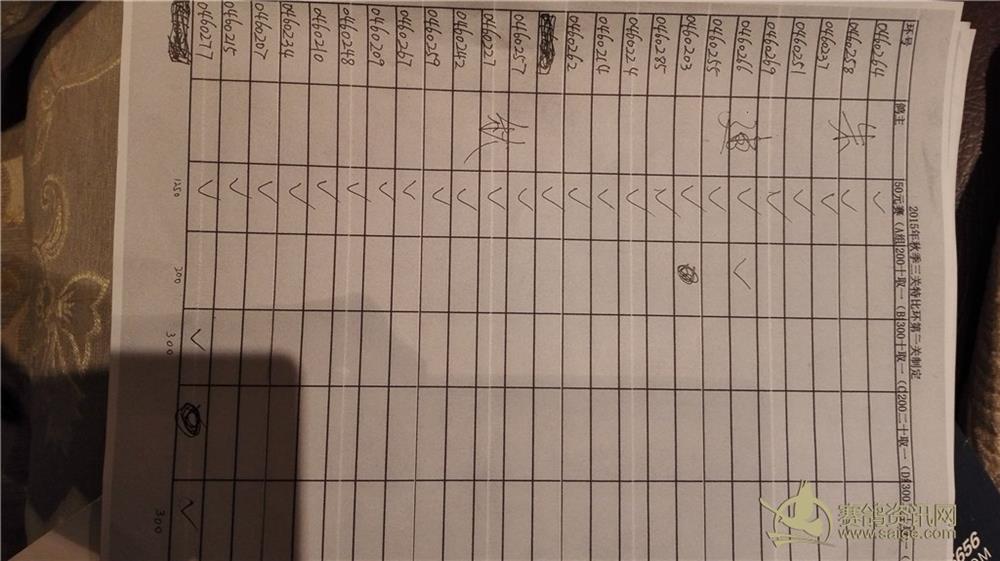 2015年秋季三关特比环第二关制定
环号 鸽主 50元赛（A组 200十取一（B 300十取一（C 200二十取一（D 300
0460264 ✓
0460258 朱 ✓
0460237 ✓
0460251 ✓
0460269 ✓
0460266 ✓ ✓
0460255 ✓
0460203 ✓
0460285 ✓
0460224 ✓
0460214 ✓
0460262 ✓
✓
0460257 ✓
0460227 ✓
0460242 ✓
0460259 ✓
0460267 ✓
0460209 ✓
0460248 ✓
0460210 ✓
0460234 ✓
0460207 ✓
0460215 ✓
0460277 ✓ ✓ ✓
1250 200 300 300
赛鸽资讯网
www.saige.com
656
OM